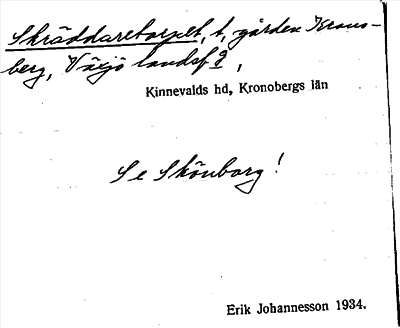 Skräddaretorpet, t, gården Krons-
berg, Växjö landsf 2,
Kinnevalds hd, Kronobergs län
Se Skönborg!
Erik Johannesson 1934.